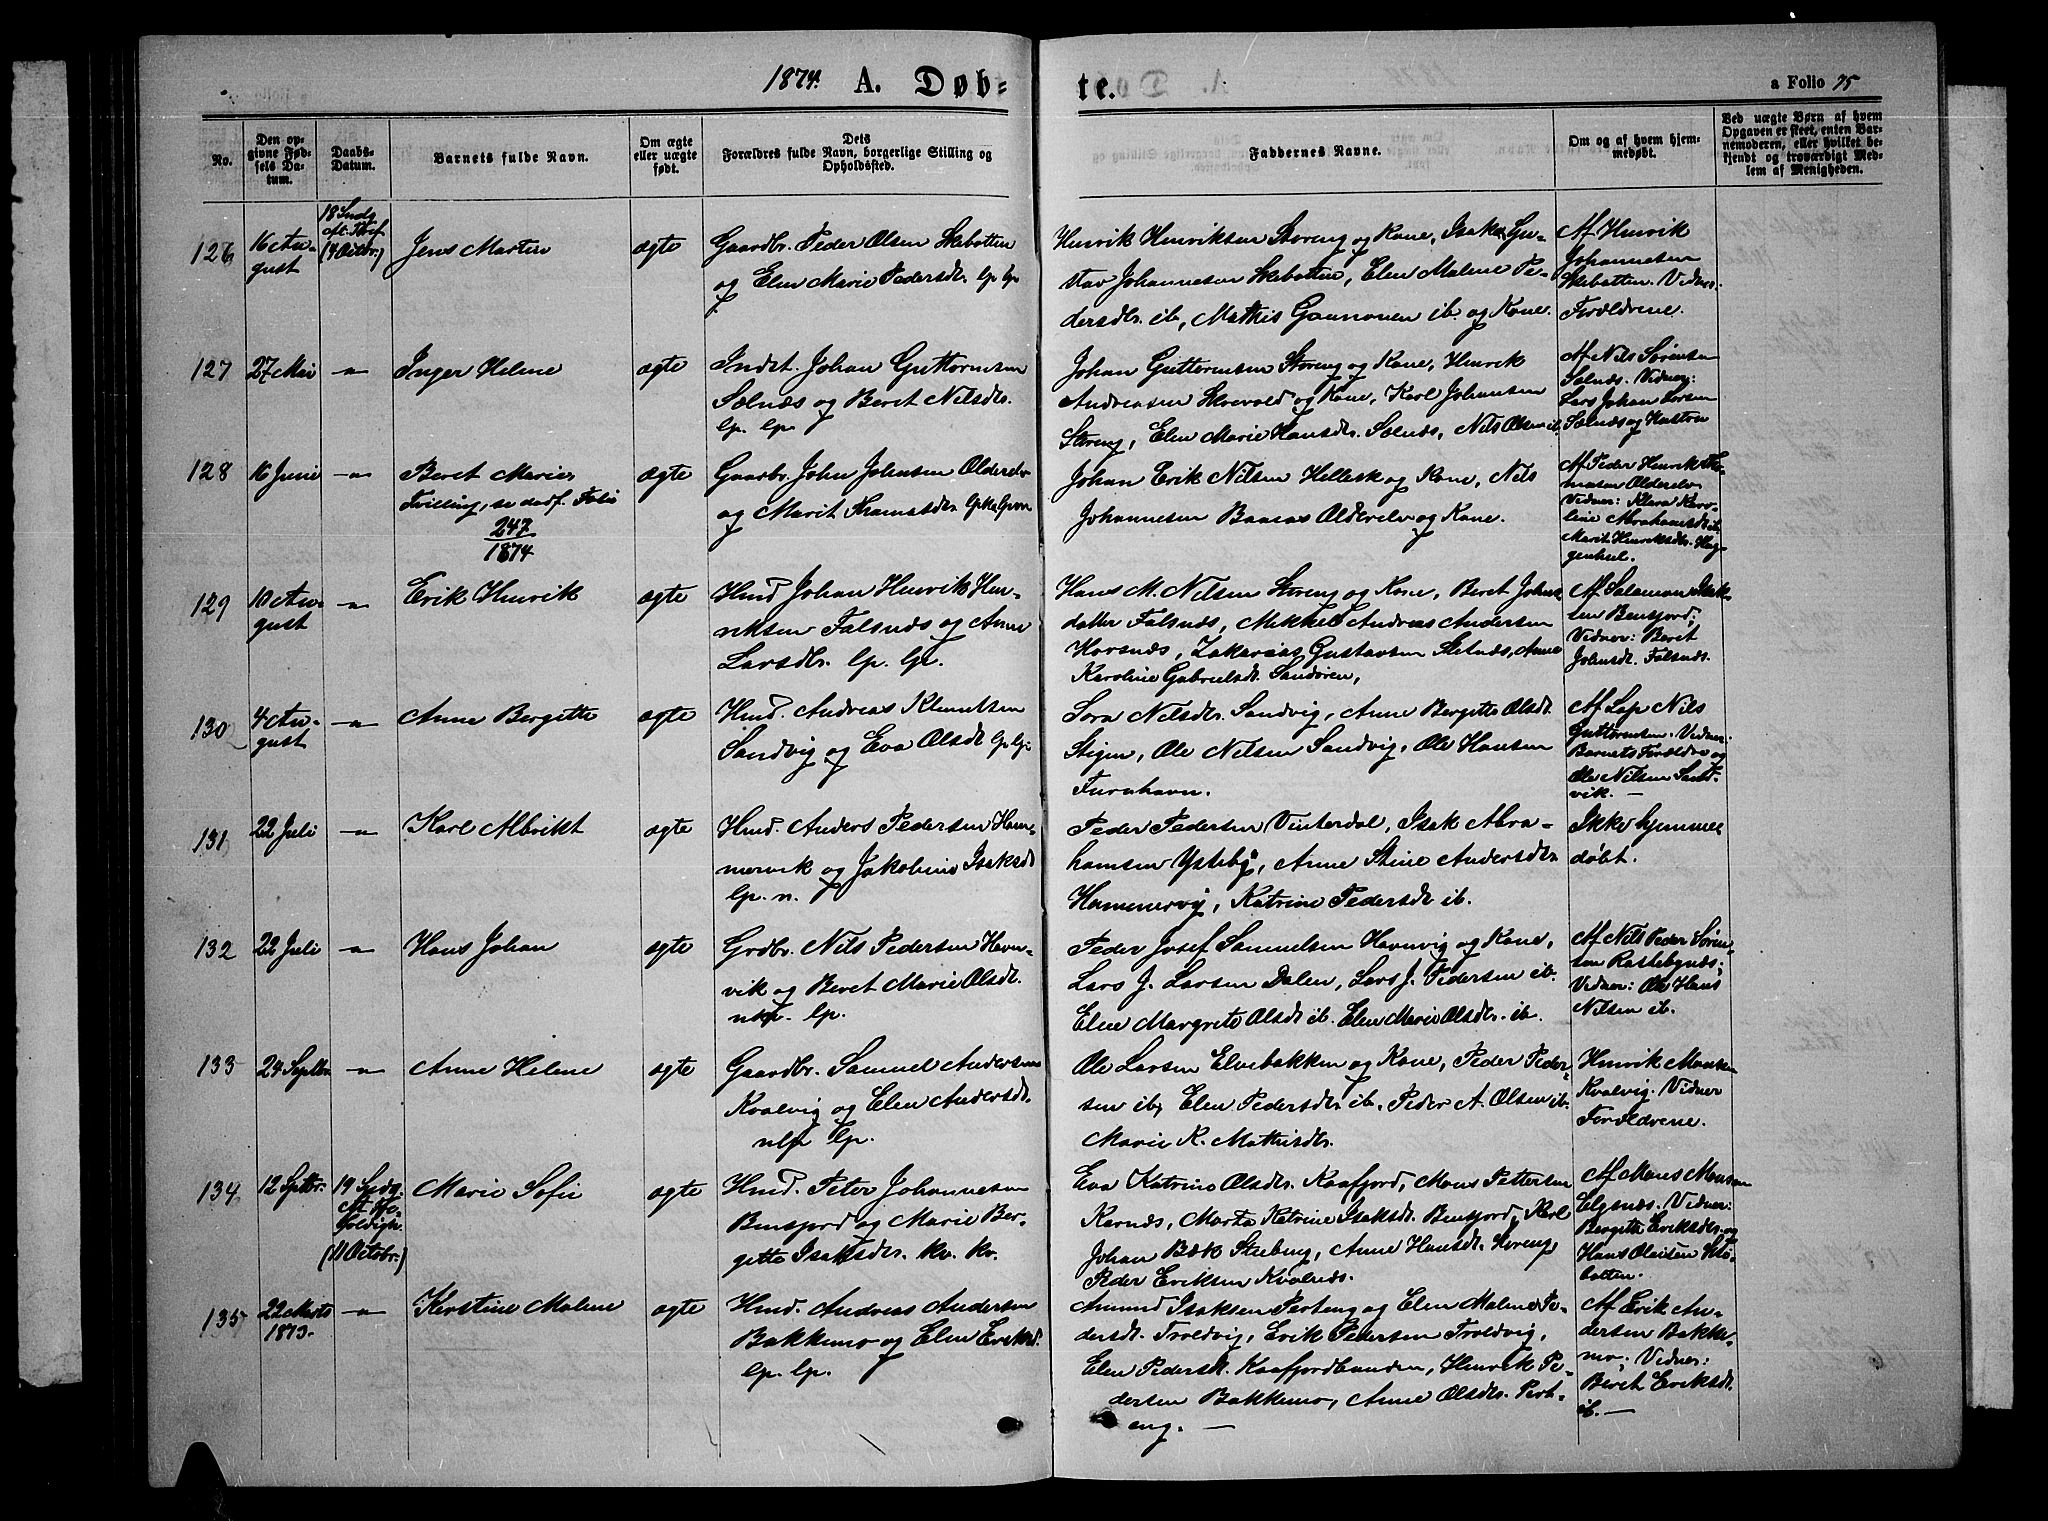 1874. A. Døb=
te.
a Folio 75
No.
Den op=
givne Fød=
sels Da=
tum.
Daabs=
Datum.
Barnets fulde Navn.
Om ægte
eller uægte
født.
Dets
Forældres fulde Navn, borgerlige Stilling og
Opholdssted.
Faddernes Navne.
Om og af hvem hjem=
medøbt.
Ved uægte Børn af hvem
Opgaven er skeet, enten Bar=
nemoderen, eller hvilket be=
kjendt og troværdigt Med=
lem af Menigheden.
126
16 Au-
gust
18 Sndg
(4 Octbr.)
Jens Martin
ægte
Gaardbr. Peder Olsen Skibotten
og Elen Marie Pedersdr. lp. lp.
Henrik Henriksen Storeng og Kone, Isak Gu-
stav Johannesen Skibotten, Elen Malene Pe-
dersdr. ib, Mathis Gaunonen ib. og Kone.
Af Henrik
Johannesen
Skibotten. Vidner:
Forældrene.
127
27 Mai
-"-
Inger Helene
ægte
Indst. Johan Guttormsen
Salnæs og Beret Nilsdr.
lp. lp.
Johan Guttormsen Storeng og Kone, Henrik
Andreasen Skovold og Kone, Karl Johansen
Storeng, Elen Marie Hansdr. Salnæs, Nils Olsen ib.
Af Nils Sørensen
Salnæs. Vidner:
Lars Johan Larsen
Salnæs og Kustru
128
16 Juni
-"-
Beret Marie,
Tvilling, se dødf. Folio
247
1874
ægte
Gaardbr. John Johnsen Olderelv
og Marit Thomasdr.
Johan Erik Nilsen Hellesk og Kone, Nils
Johannesen Baasas Olderelv og Kone.
Af Peder Henrik Tho-
masen Olderelv
Vidner: Klara Karo-
line Abrahamsdr. ib.
Marit Henriksdr.
129
10 Au-
gust
-"-
Erik Henrik
ægte
Hmd Johan Henrik Hen-
riksen Falsnæs og Anne
Larsdr. lp. lp.
Hans M. Nilsen Storeng og Kone, Beret Johns-
datter Falsnæs, Mikkel Andreas Andersen
Horsnæs, Zakarias Gustavsen Skitnæs, Anne
Karoline Gabrielsdr. Sandøren,
Af Salamon Isak-
sen Bensjord;
Vidner: Beret
Johnsdr. Falsnæs.
130
4 Au-
gust
-"-
Anne Bergitte
ægte
Hmd. Andreas Klemetsen
Sandvig og Eva Olsdr. lp. lp.
Sara Nilsdr. Sandvig, Anne Bergitte Olsdr.
Stigen, Ole Nilsen Sandvig, Ole Hansen
Furuhavn.
Af Lap Nils
Guttormsen. Vidner:
Barnets Forældre og
Ole Nilsen Sand-
vik. —
131
22 Juli
-"-
Karl Albrikt
ægte
Hmd. Anders Pedersen Ham-
mervik og Jakobine Isaksdr.
lp. n.
Peder Pedersen Vinterdal, Isak Abra-
hamsen Ysteby, Anne Stine Andersdr.
Hammervig, Katrine Pedersdr. ib.
Ikke hjemme
døbt.
132
22 Juli
-"-
Hans Johan
ægte
Grdbr. Nils Pedersen Havn-
vik og Beret Marie Olsdr.
nlp. lp.
Peder Josef Samuelsen Havnvig og Kone,
Lars J. Larsen Dalen, Lars J. Pedersen ib.
Elen Margrete Olsdr ib. Elen Marie Olsdr. ib.
Af Nils Peder Søren-
sen Rastebynæs;
Vidner: Ole Hans
Nilsen ib.
133
24 Septbr.
-"-
Anne Helene
ægte
Gaardbr. Samuel Andersen
Kvalvig og Elen Andersdr.
nlp lp.
Ole Larsen Elvebakken og Kone, Peder Peder-
sen ib, Elen Pedersdr. ib. Peder A. Olsen ib.
Marie K. Mathisdr.
Henrik Monsen
Kvalvig. Vidner
Forældrene.
134
12 Septbr.
19 Sndg.
(11 Octobr.)
Marie Sofie
ægte
Hmd. Peter Johannesen
Bensjord og Marie Ber-
gitte Isaksdr. kv. kv.
Eva Katrine Olsdr. Kaafjord, Mons Pettersen
Karnæs, Marta Katrine Isaksdr. Bensjord, Karl
Johan Bæk Stueeng, Anne Hansdr. Storeng,
Peder Eriksen Kvalnæs.
Af Mons Monsen
Elgsnæs. Vidner:
Bergitte Eriksdr. og
Hans Olaisen Ski-
botten.
135
22 Marts
1873.
-"-
Kirstine Malene
ægte
Hmd. Andreas Andersen
Bakkemo og Elen Eriksdr.
lp. lp.
Amund Isaksen Perteng og Elen Malene Pe-
dersdr. Troldvig, Erik Pedersen Troldvig,
Elen Pedersdr. Kaafjordbunden, Henrik Pe-
dersen Bakkemo, Anne Olsdr. Pert-
eng. —
Af Erik An-
dersen Bakke-
mo; Vidner:
Beret Eriksdr.
ib. —